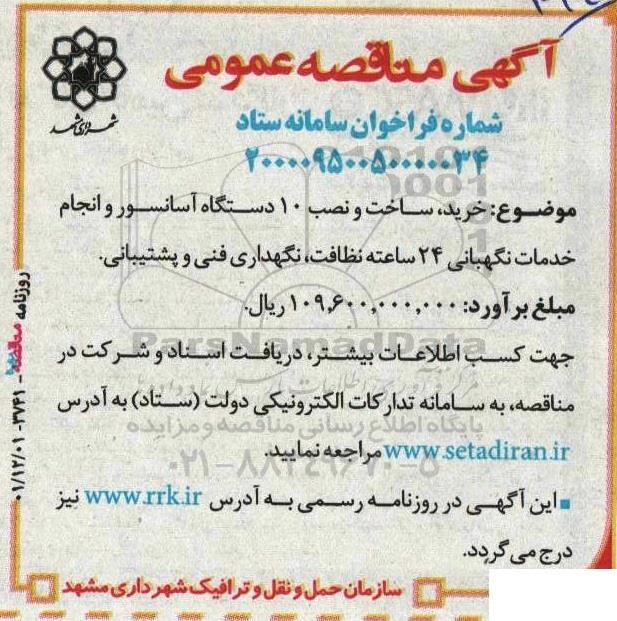 آگهی مناقصه عمومی
شهرداری مشهد
شماره فراخوان سامانه ستاد
۲۰۰۰۰۹۵۰۰۵۰۰۰۰۳۴
موضوع: خرید، ساخت و نصب ۱۰ دستگاه آسانسور و انجام
خدمات نگهبانی ۲۴ ساعته نظافت، نگهداری فنی و پشتیبانی.
مبلغ برآورد: ۱۰۹,۶۰۰,۰۰۰,۰۰۰ ریال.
جهت کسب اطلاعات بیشتر، دریافت اسناد و شرکت در
مناقصه، به سامانه تدارکات الکترونیکی دولت (ستاد) به آدرس
www.setadiran.ir مراجعه نمایید.
این آگهی در روزنامه رسمی به آدرس www.rrk.ir نیز
درج می گردد.
سازمان حمل و نقل و ترافیک شهرداری مشهد
روزنامه مناقصه - ۳۷۴۱ - ۰۱/۱۲/۰۱
ParsNamadData
پایگاه اطلاع رسانی مناقصه و مزایده
۰۲۱-۸۸۳۴۹۶۷۰-۵